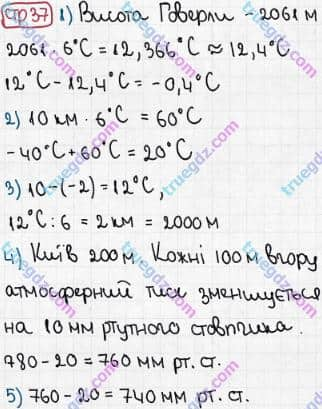 стр37 1) Висота Говерли - 2061 м
2061 · 6°C = 12,366°C ≈ 12,4°C
12°C - 12,4°C = -0,4°C
2) 10 км · 6°C = 60°C
-40°C + 60°C = 20°C
3) 10-(-2) = 12°C,
12°C : 6 = 2 км = 2000 м
4) Київ 200 м. Кожні 100 м вгору
атмосферний тиск зменшується
на 10 мм ртутного стовпчика.
780 - 20 = 760 мм рт. ст.
5) 760 - 20 = 740 мм рт. ст.
truegdz.com
truegdz.com
truegdz.com
truegdz.com